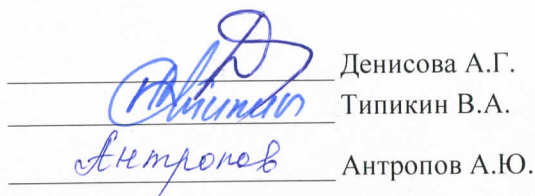 Денисова А.Г.
Типикин В.А.
Антропов Антропов А.Ю.